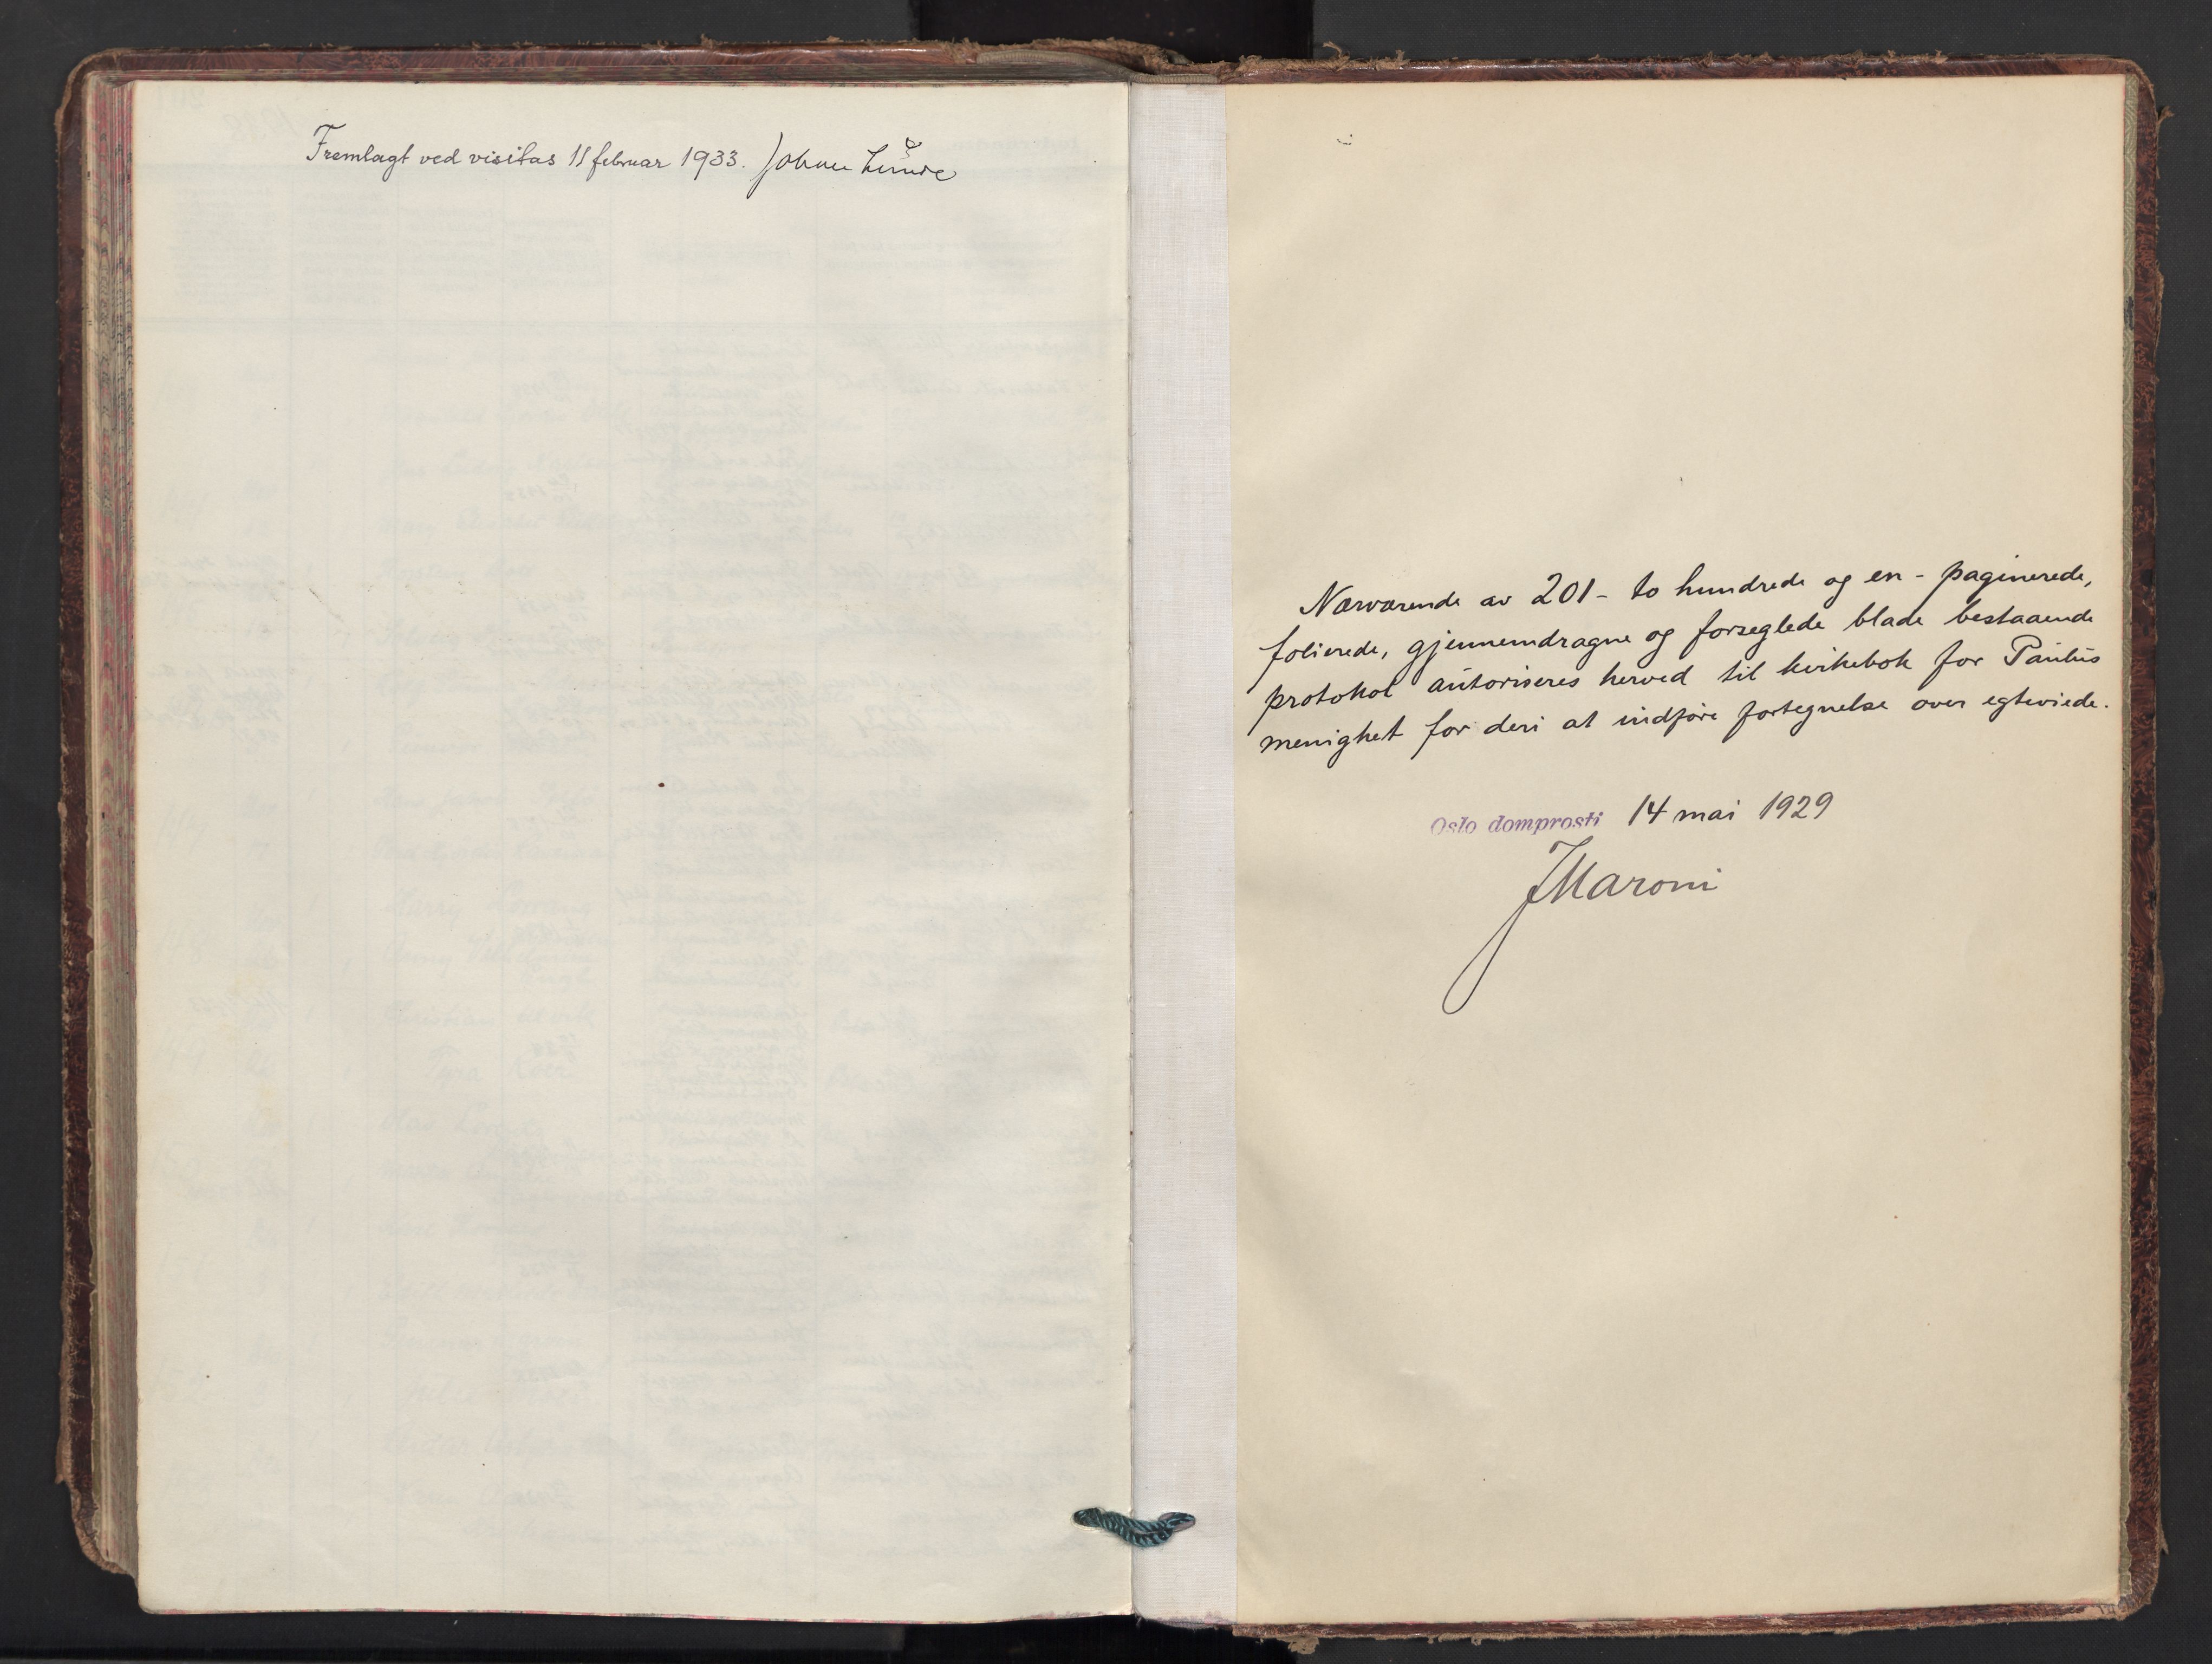 Fremlagt ved visitas 11 februar 1933. Johan Lunde
Nærværende av 201 - to hundrede og en - paginerede,
folierede, gjennemdragne og forseglede blade bestaaende
protokol autoriseres herved til kirkebok for Paulus
menighet for deri at indføre fortegnelse over egteviede.
Oslo domprosti 14 mai 1929
JMaroni